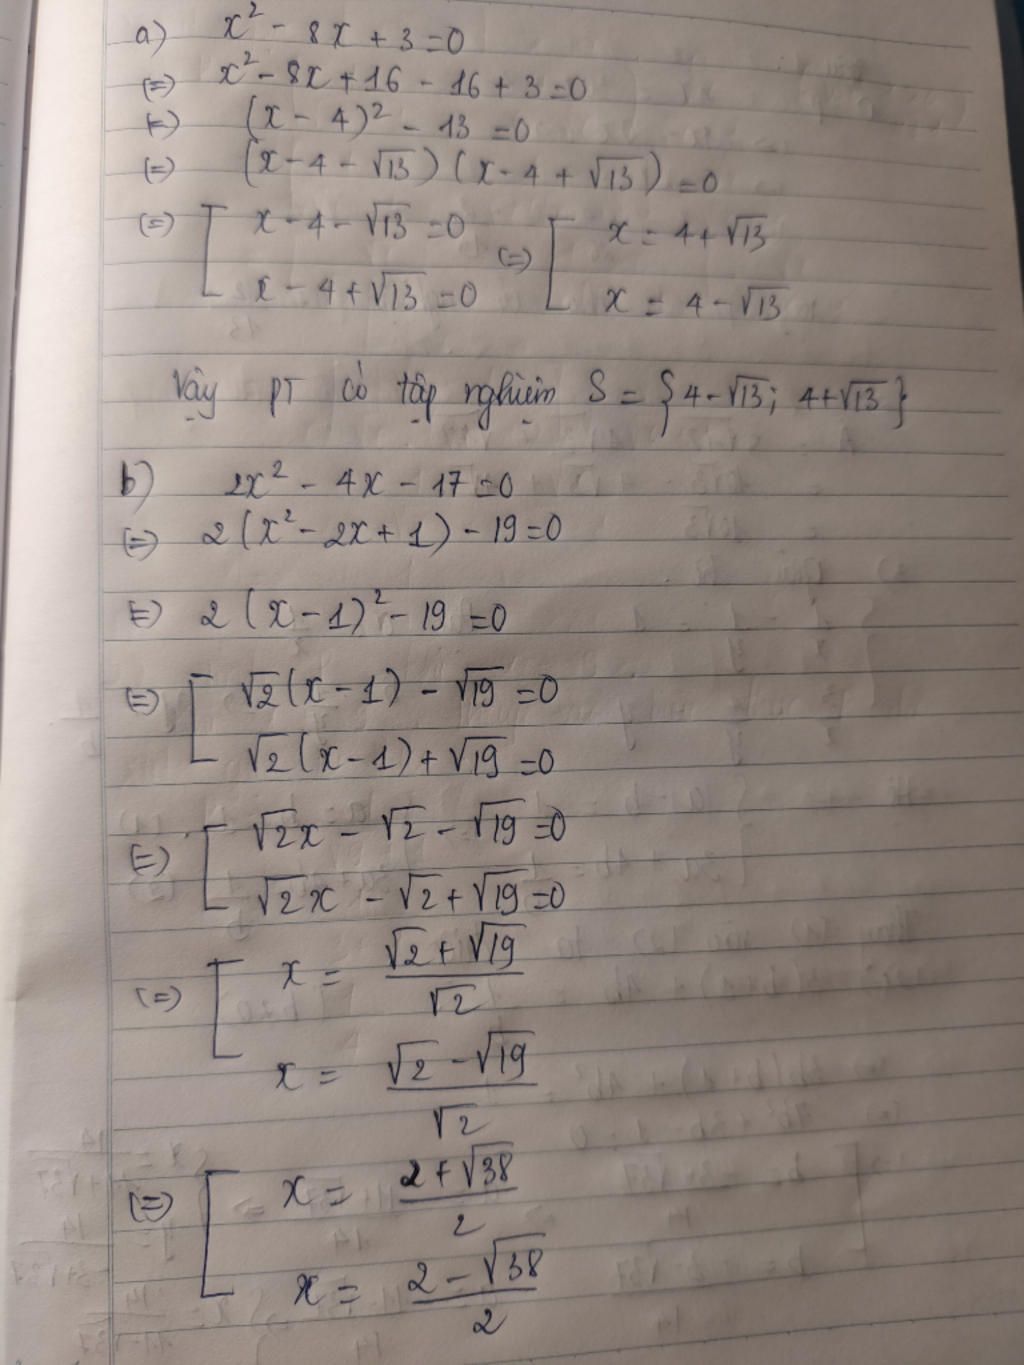 a) x² - 8x + 3 = 0
(=) x² - 8x + 16 - 16 + 3 = 0
(=) (x - 4)² - 13 = 0
(=) (x - 4 - √13) (x - 4 + √13) = 0
(=) [ x - 4 - √13 = 0 (=) [ x = 4 + √13
x - 4 + √13 = 0 x = 4 - √13
Vậy PT có tập nghiệm S = {4 - √13; 4 + √13}
b) 2x² - 4x - 17 = 0
(=) 2 (x² - 2x + 1) - 19 = 0
(=) 2 (x - 1)² - 19 = 0
(=) [ √2 (x - 1) - √19 = 0
√2 (x - 1) + √19 = 0
(=) [ √2x - √2 - √19 = 0
√2x - √2 + √19 = 0
(=) [ x = (√2 + √19)/√2
x = (√2 - √19)/√2
(=) [ x = (2 + √38)/2
x = (2 - √38)/2